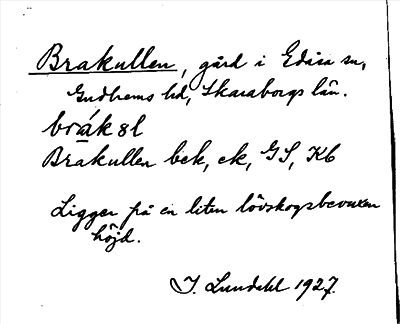 Brakullen, gård i Edåsa sn,
Gudhems hd, Skaraborgs län.
brák8l
Brakullen bek, ek, GS, Kb
Ligger på en liten lövskogsbevuxen
höjd.
J. Lundahl 1927.